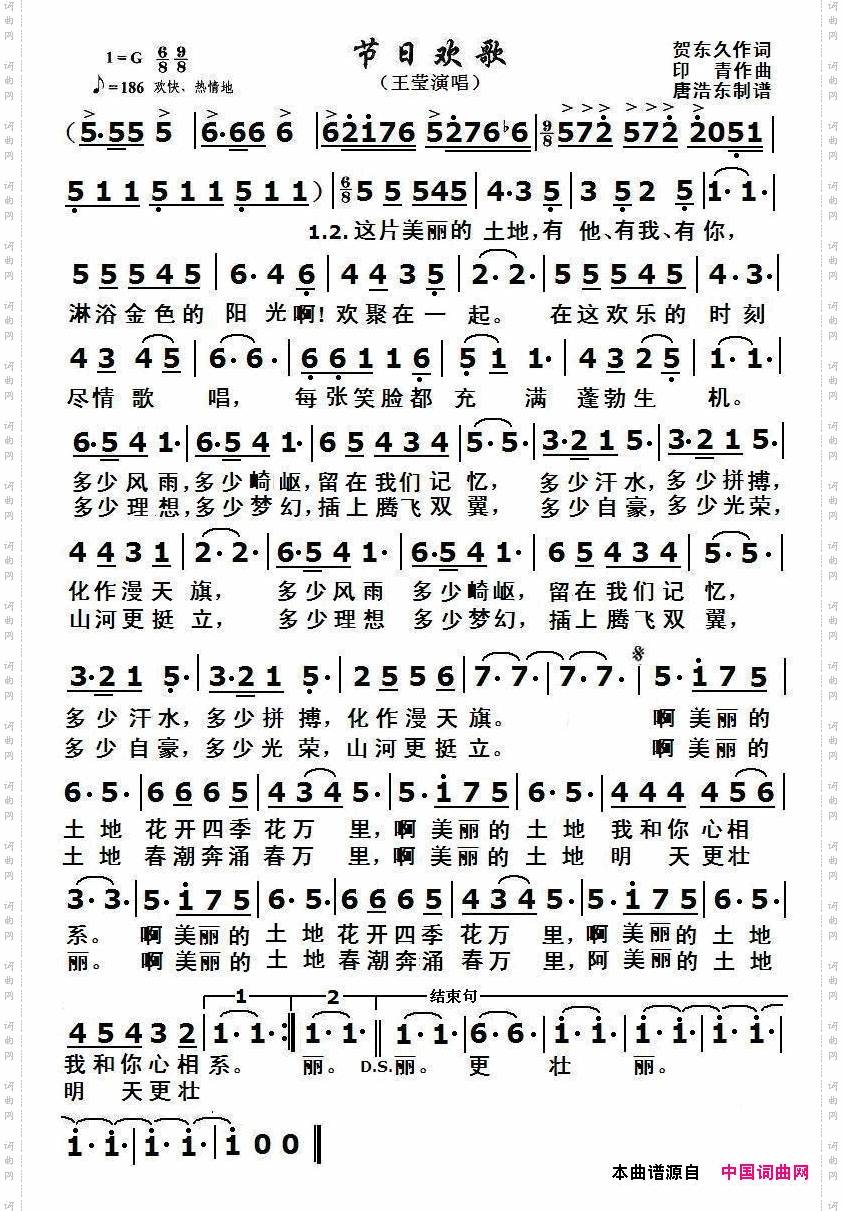 节日欢歌
（王莹演唱）
1=G 6/8 9/8
♪=186 欢快、热情地
贺东久作词
印 青作曲
唐浩东制谱
（5·55 5 | 6·66 6 | 62176 5276♭6 | 9/8 572 572 2051 |
511 511 511） | 6/8 5 5 545 | 4·3 5 | 3 52 5 | 1· 1· |
1.2. 这片美丽的 土地，有 他、有我、有你，
5 5 5 4 5 | 6·4 6 | 4 4 3 5 | 2·2· | 5 5 5 4 5 | 4·3· |
淋浴金色的 阳光啊！欢聚在一 起。 在这欢乐的 时刻
4 3 4 5 | 6·6· | 6 6 1 1 6 | 5 1 1· | 4 3 2 5 | 1·1· |
尽情歌 唱， 每张笑脸都 充 满 蓬勃生 机。
6·5 4 1· | 6·5 4 1· | 6 5 4 3 4 | 5·5· | 3·2 1 5· | 3·2 1 5· |
多少风雨，多少崎岖，留在我们记忆， 多少汗水，多少拼搏，
多少理想，多少梦幻，插上腾飞双翼， 多少自豪，多少光荣，
4 4 3 1 | 2·2· | 6·5 4 1· | 6·5 4 1· | 6 5 4 3 4 | 5·5· |
化作漫天 旗， 多少风雨 多少崎岖，留在我们记 忆，
山河更挺 立， 多少理想 多少梦幻，插上腾飞双 翼，
3·2 1 5· | 3·2 1 5· | 2 5 5 6 | 7·7· | 7·7· | 5·1 7 5 |
多少汗水，多少拼搏，化作漫天旗。 啊美丽的
多少自豪，多少光荣，山河更挺立。 啊美丽的
6·5· | 6 6 6 5 | 4 3 4 5· | 5·1 7 5 | 6·5· | 4 4 4 4 5 6 |
土地 花开四季 花万 里，啊美丽的 土地 我和你心相
土地 春潮奔涌 春万 里，啊美丽的 土地 明 天更壮
3·3· | 5·1 7 5 | 6·5· | 6 6 6 5 | 4 3 4 5· | 5·1 7 5 | 6·5· |
系。 啊美丽的 土地 花开四季 花万 里，啊美丽的 土地
丽。 啊美丽的 土地 春潮奔涌 春万 里，阿美丽的 土地
1 2 结束句
4 5 4 3 2 | 1·1· :‖ 1·1· ‖ 1·1· | 6·6· | 1·1· | 1·1· | 1·1· |
我和你心相 系。 丽。 D.S.丽。 更 壮 丽。
明 天更壮
1·1· | 1·1· | 1 0 0 ‖
本曲谱源自 中国词曲网